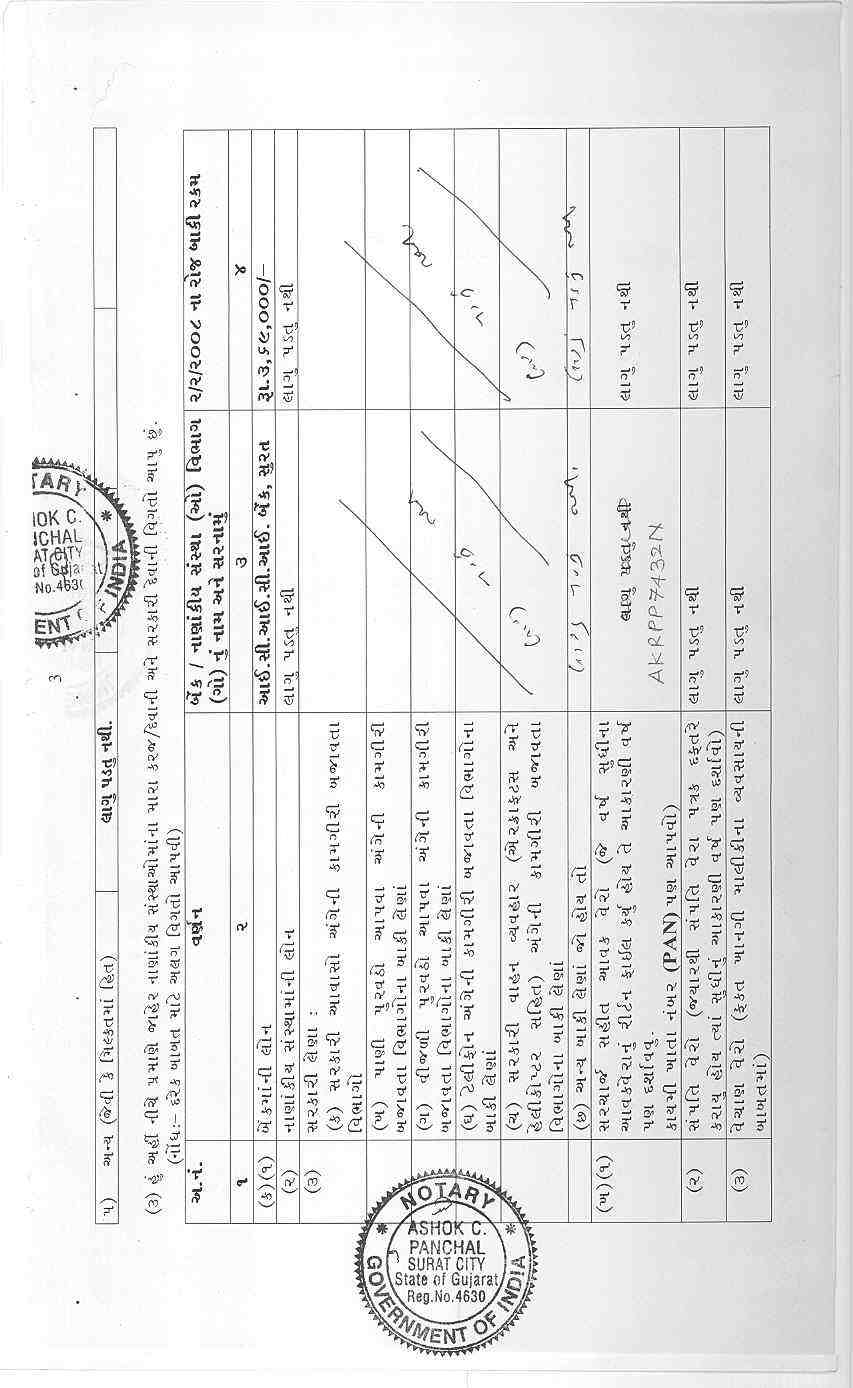 ૩
૫) અન્ય (જેવી કે મિલ્કતમાં હિત) લાગુ પડતુ નથી.
(૩) હું અહીં નીચે પ્રમાણે જાહેર નાણાંકીય સંસ્થાઓમાંના મારા કરજ/દેવાની અને સરકારી દેવાની વિગતો આપું છું.
(નોંધ:– દરેક બાબત માટે અલગ વિગતો આપવી)
અ.નં. વર્ણન બેંક / નાણાંકીય સંસ્થા (ઓ) વિભાગ (ગો) નું નામ અને સરનામું ૨/૨/૨૦૦૮ ના રોજ બાકી રકમ
૧ ૨ ૩ ૪
(ક)(૧) બેંકમાની લોન આઈ.સી.આઈ.સી.આઈ. બેંક, સુરત રૂા.૩,૬૯,૦૦૦/–
(૨) નાણાંકીય સંસ્થામાંની લોન લાગુ પડતુ નથી લાગુ પડતુ નથી
(૩) સરકારી લેણા :
(ક) સરકારી આવાસો અંગેની કામગીરી બજાવતા
વિભાગો
(ખ) પાણી પુરવઠો આપવા અંગેની કામગીરી
બજાવતા વિભાગોના બાકી લેણાં
(ગ) વીજળી પુરવઠો આપવા અંગેની કામગીરી
બજાવતા વિભાગોના બાકી લેણાં
(ઘ) ટેલીફોન અંગેની કામગીરી બજાવતા વિભાગોના
બાકી લેણાં
(ચ) સરકારી વાહન વ્યવહાર (એરક્રાફ્ટસ અને
હેલીકોપ્ટર સહિત) અંગેની કામગીરી બજાવતા
વિભાગોના બાકી લેણાં
(છ) અન્ય બાકી લેણાં જો હોય તો
(ખ)(૧) સરચાર્જ સહીત આવક વેરો (જે વર્ષ સુધીના
આવકવેરાનું રીર્ટન ફાઈલ કર્યું હોય તે આકારણી વર્ષ
પણ દર્શાવવુ.
કાયમી ખાતા નંબર (PAN) પણ આપવો)
લાગુ પડતુ નથી
AKRPP7432N
લાગુ પડતુ નથી
(૨) સંપતિ વેરો (જ્યારથી સંપતિ વેરા પત્રક દફતરે
કરાયું હોય ત્યાં સુધીનું આકારણી વર્ષ પણ દર્શાવો)
લાગુ પડતુ નથી લાગુ પડતુ નથી
(૩) વેચાણ વેરો (ફેક્ત ખાનગી માલીકીના વ્યવસાયની
બાબતમાં)
લાગુ પડતુ નથી લાગુ પડતુ નથી
NOTARY
ASHOK C.
PANCHAL
SURAT CITY
State of Gujarat
Reg.No.4630
GOVERNMENT OF INDIA
TARY
HOK C.
NCHAL
AT CITY
of Gujarat
No.4630
ENT
INDIA